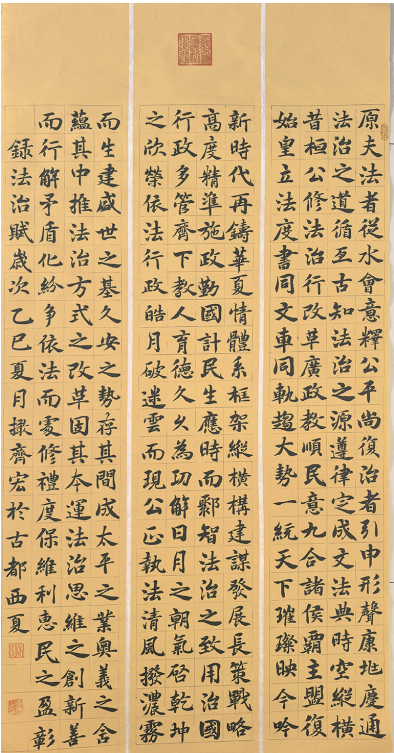 原夫法者從水會意釋公平尚復治者引申形聲康地慶通
法治之道循互古知法治之源遵律定成文法典時空縱橫
昔桓公修法治行改革廣政教順民意九合諸侯霸主盟復
始皇立法度書同文車同軌趨大勢一統天下璀璨映今吟
新時代再鑄華夏情體系框架縱橫構建謀發展長策戰略
高度精準施政勤國計民生應時而鄴智法治之致用治國
行政多管齊下教人育德久久為功解日月之朝氣啓乾坤
之欣榮依法行政皓月破迷雲而現公正執法清風撥濃霧
而生建盛世之基久安之勢存其間成太平之業奧義之舍
蘊其中推法治方式之改革固其本運法治思維之創新善
而行解矛盾化紛爭依法而處修禮度保維利惠民之盈彰
錄法治賦歲次乙巳夏月揪齊宏於古都西夏